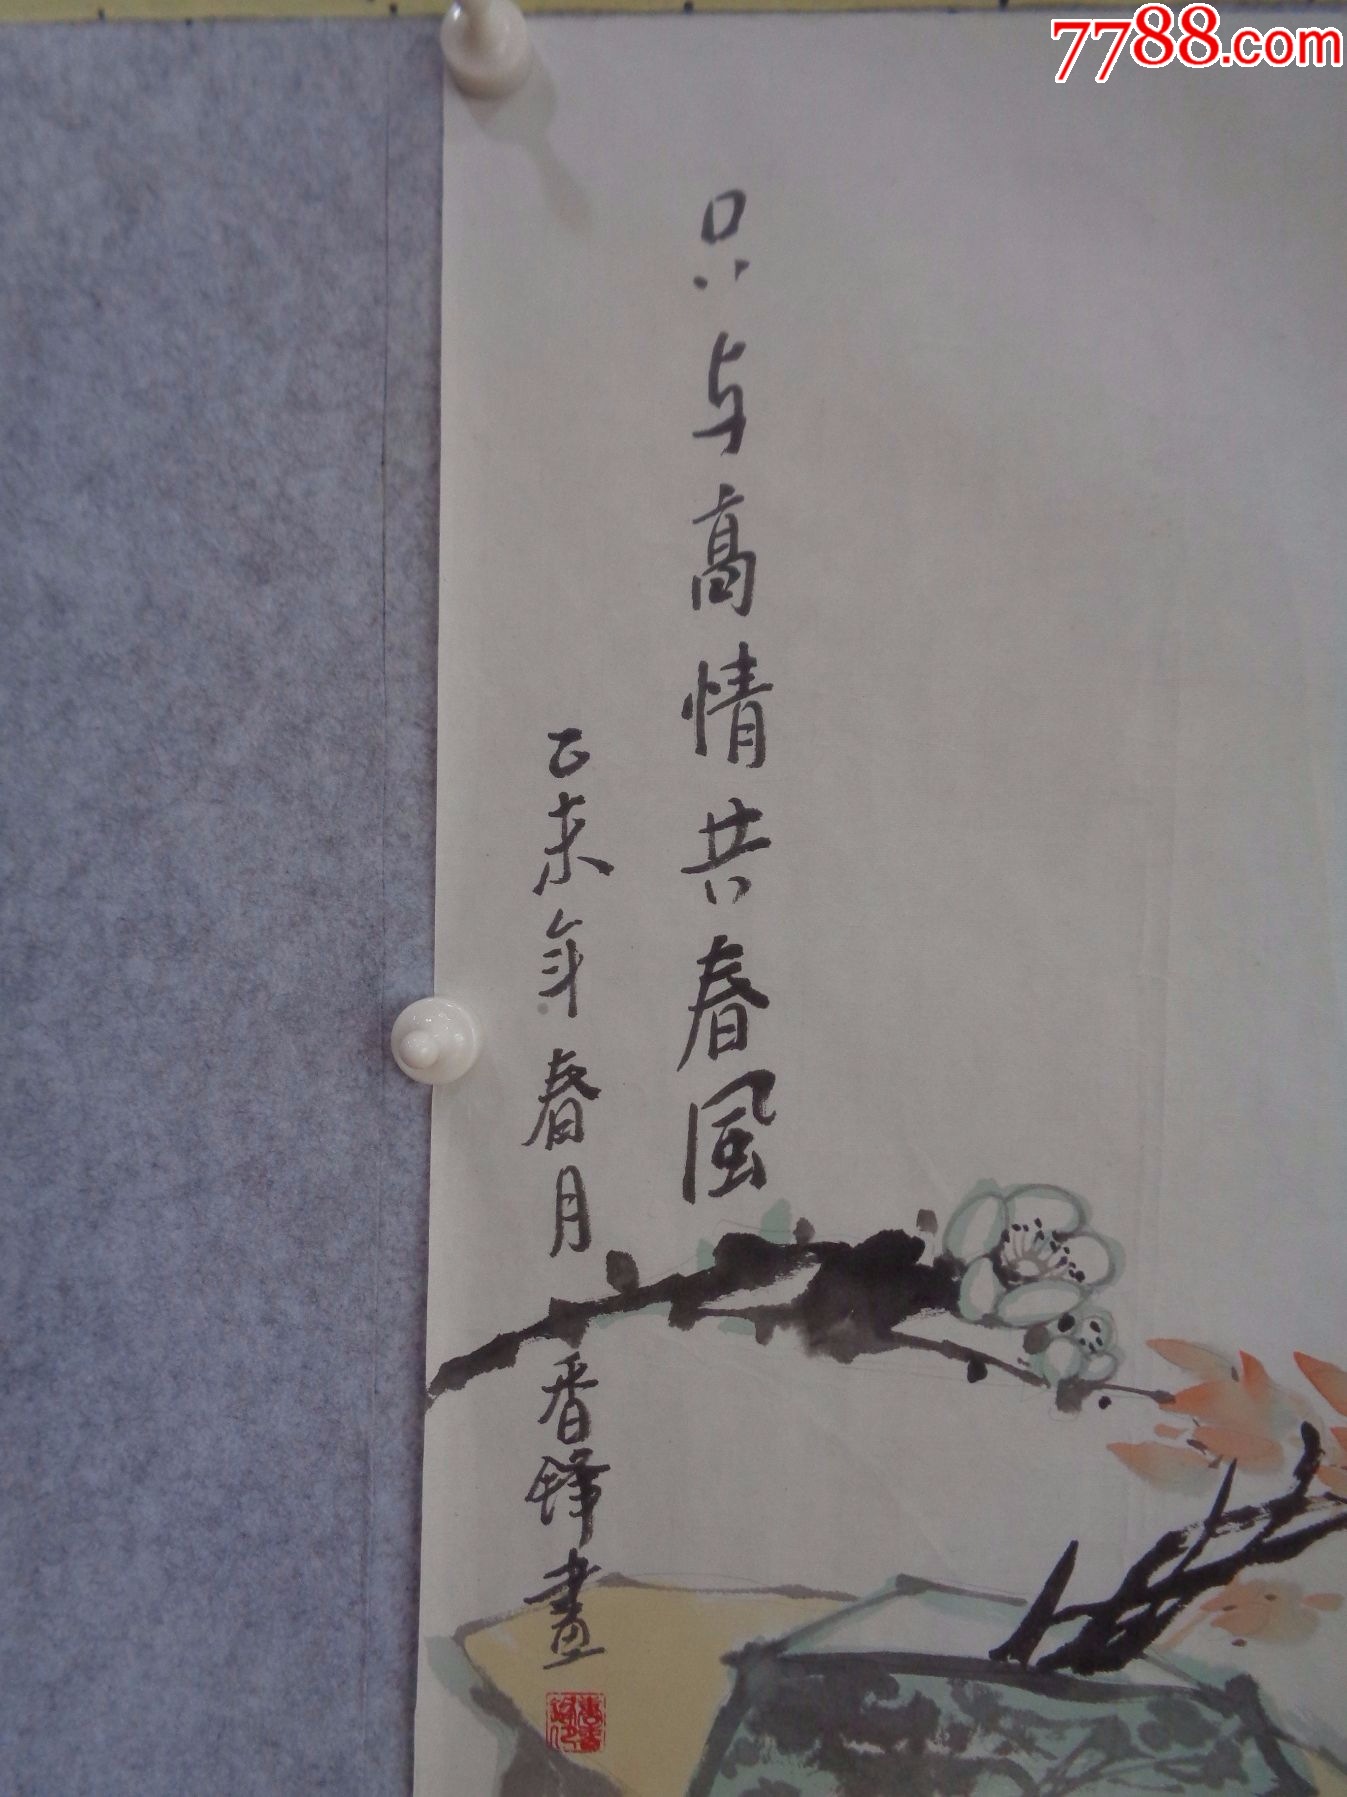 7788.com
只与高情共春風
乙未年春月 香鋒畫